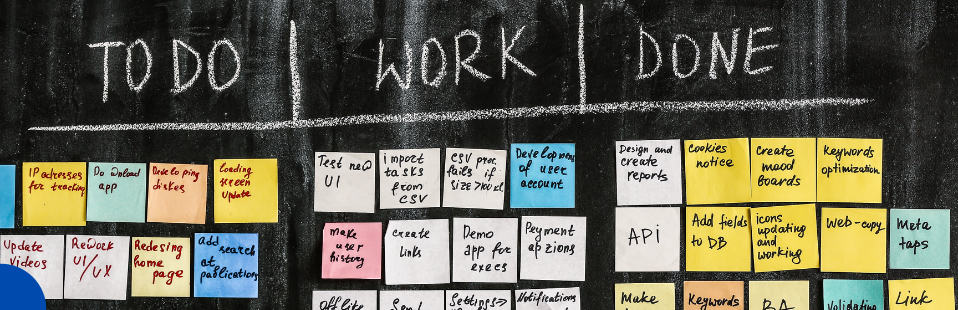 TODO
WORK
DONE
IP adresses
for tracking
Download
app
diskes
Loading
screen
update
Update
Videos
ReWork
UI/UX
Redesing
home
page
add
search
at
publications
Test new
UI
import
tasks
from
CSV
CSV proc.
fails if
of user
account
make
user
history
create
links
Demo
app for
execs
Peyment
Settings→
Notifications
Design and
create
reports
Cookies
notice
create
mood
Boards
Keywords
optimization
API
Add fields
to DB
icons
updating
and
working
Web-copy
Meta
taps
Make
Keywords
BA
Validating
Link